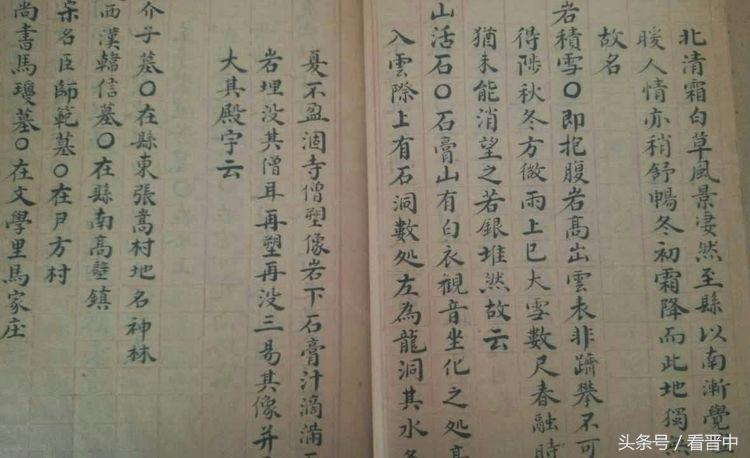 北清霜白草風景凄然至縣以南漸覺
暖人情亦稍舒暢冬初霜降而此地獨
故名
岩積雪〇即抱腹岩高出雲表非躋攀不可
得陟秋冬方微雨上已大雪數尺春融時
猶未能消望之若銀堆然故云
山活石〇石膏山有白衣觀音坐化之処
入雲際上有石洞數処左為龍洞其水
夏不盈涸寺僧塑像岩下石膏汁滴滿
岩埋没其僧耳再塑再没三易其像并
大其殿宇云
介子墓〇在縣東張嵩村地名神林
西漢韓信墓〇在縣南高壁鎮
宋名臣師範墓〇在尹方村
尚書馬瓊墓〇在文學里馬家庄
头条号/看晋中